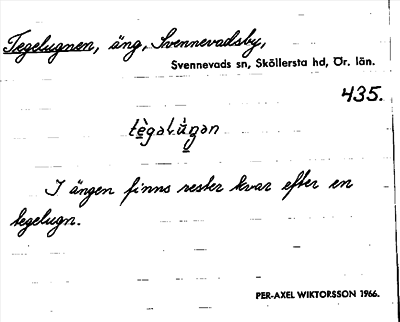 Tegelugnen, äng, Svennevadsby,
Svennevads sn, Sköllersta hd, Ör. län.
435.
tègəlùṉgən
I ängen finns rester kvar efter en
tegelugn.
PER-AXEL WIKTORSSON 1966.